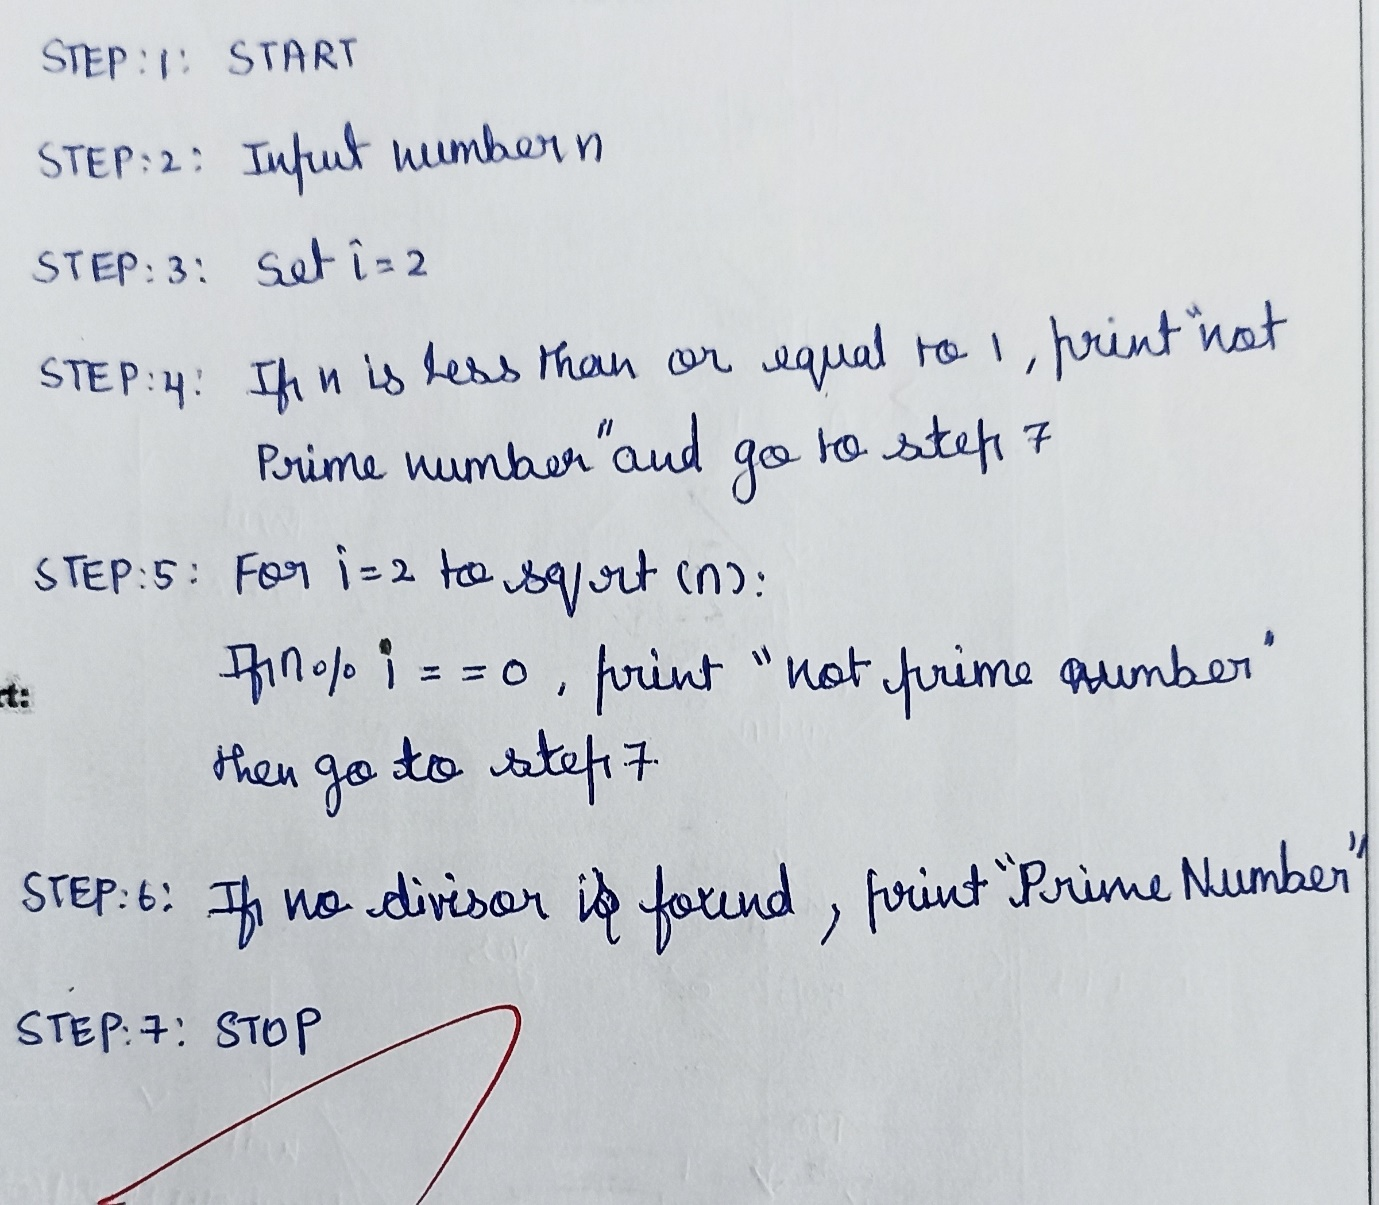 STEP:1: START
STEP:2: Input number n
STEP:3: Set i=2
STEP:4: If n is less than or equal to 1, print "not
Prime number" and go to step 7
STEP:5: For i=2 to sqrt (n):
If n % i == 0, print "not prime number"
then go to step 7.
rt:
STEP:6: If no divisor is found, print "Prime Number"
STEP:7: STOP